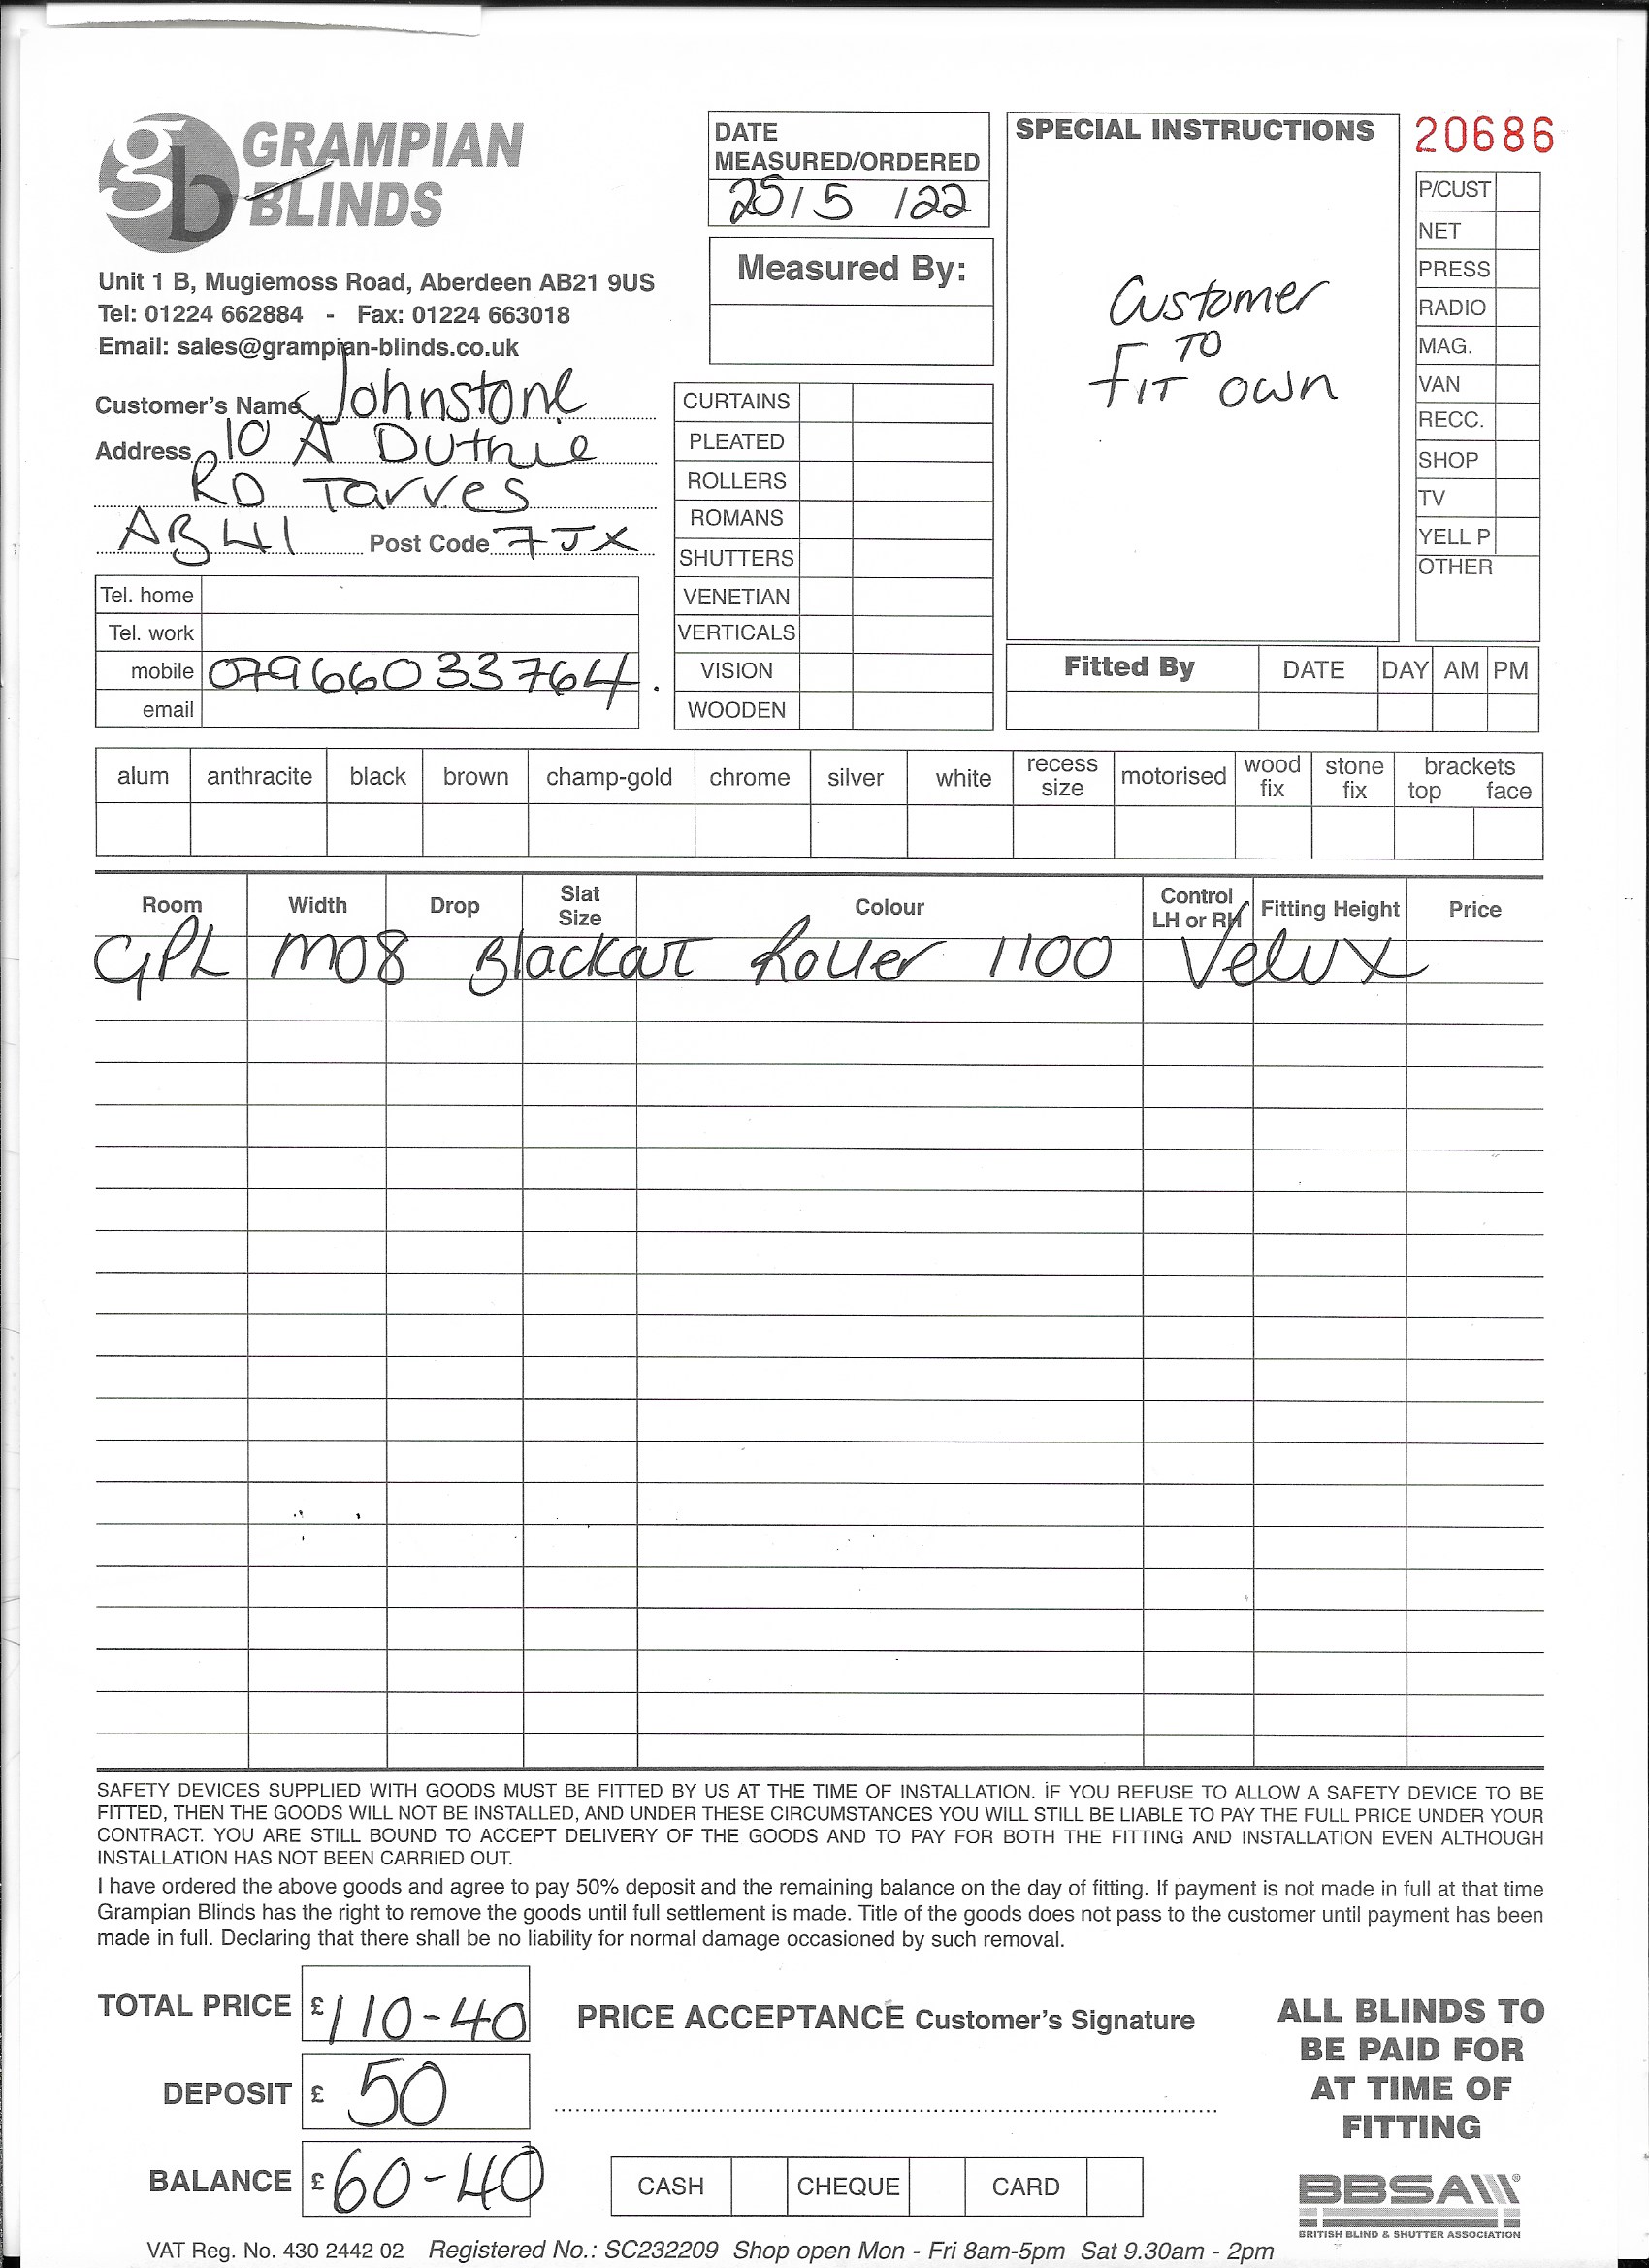 gb GRAMPIAN BLINDS
Unit 1 B, Mugiemoss Road, Aberdeen AB21 9US
Tel: 01224 662884 - Fax: 01224 663018
Email: sales@grampian-blinds.co.uk
Customer's Name Johnstone
Address 10 A Duthie
RD Tarves
AB41 Post Code 7JX
Tel. home
Tel. work
mobile 07966033764.
email
DATE
MEASURED/ORDERED
25/5/22
Measured By:
CURTAINS
PLEATED
ROLLERS
ROMANS
SHUTTERS
VENETIAN
VERTICALS
VISION
WOODEN
SPECIAL INSTRUCTIONS
Customer
TO
FIT own
20686
P/CUST
NET
PRESS
RADIO
MAG.
VAN
RECC.
SHOP
TV
YELL P
OTHER
Fitted By DATE DAY AM PM
alum anthracite black brown champ-gold chrome silver white recess size motorised wood fix stone fix brackets top face
Room Width Drop Slat Size Colour Control LH or RH Fitting Height Price
GPL M08 Blackout Roller 1100 Velux
SAFETY DEVICES SUPPLIED WITH GOODS MUST BE FITTED BY US AT THE TIME OF INSTALLATION. IF YOU REFUSE TO ALLOW A SAFETY DEVICE TO BE
FITTED, THEN THE GOODS WILL NOT BE INSTALLED, AND UNDER THESE CIRCUMSTANCES YOU WILL STILL BE LIABLE TO PAY THE FULL PRICE UNDER YOUR
CONTRACT. YOU ARE STILL BOUND TO ACCEPT DELIVERY OF THE GOODS AND TO PAY FOR BOTH THE FITTING AND INSTALLATION EVEN ALTHOUGH
INSTALLATION HAS NOT BEEN CARRIED OUT.
I have ordered the above goods and agree to pay 50% deposit and the remaining balance on the day of fitting. If payment is not made in full at that time
Grampian Blinds has the right to remove the goods until full settlement is made. Title of the goods does not pass to the customer until payment has been
made in full. Declaring that there shall be no liability for normal damage occasioned by such removal.
TOTAL PRICE £110-40
DEPOSIT £ 50
BALANCE £60-40
PRICE ACCEPTANCE Customer's Signature
CASH CHEQUE CARD
ALL BLINDS TO
BE PAID FOR
AT TIME OF
FITTING
BBSA
BRITISH BLIND & SHUTTER ASSOCIATION
VAT Reg. No. 430 2442 02 Registered No.: SC232209 Shop open Mon - Fri 8am-5pm Sat 9.30am - 2pm